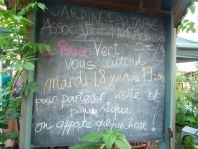 JARDIN PARTAGÉ
Association
Pouce Vert
vous attend
mardi 18 juin à 19h30
pour partager, visite et
pique nique
on apporte quelque chose!